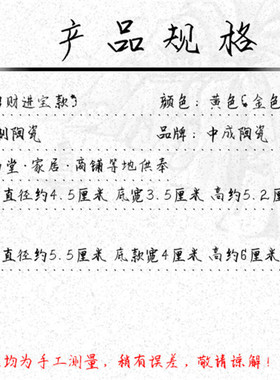 产品规格
财进宝款 颜色:黄色 金色
制陶瓷 品牌:中成陶瓷
堂·家居·商铺等地供奉
直径约4.5厘米 底宽3.5厘米 高约5.2厘米
直径约5.5厘米 底款宽4厘米 高约6厘米
均为手工测量,稍有误差,敬请谅解!